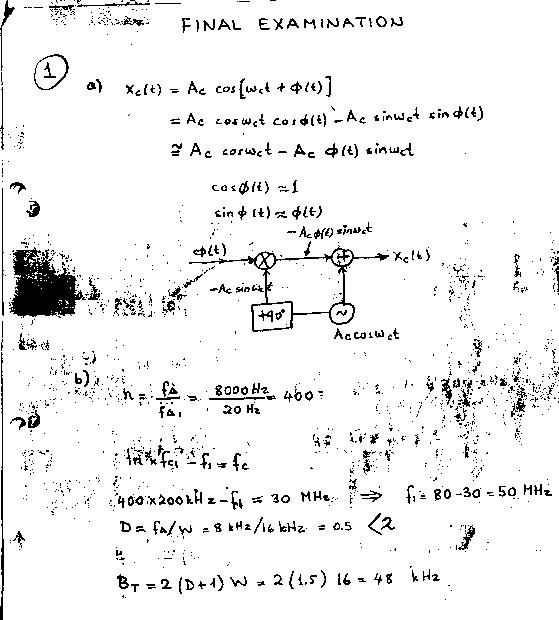 FINAL EXAMINATION
1
a) xc(t) = Ac cos[ωct + φ(t)]
= Ac cosωct cosφ(t) - Ac sinωct sinφ(t)
≅ Ac cosωct - Ac φ(t) sinωct
cosφ(t) ≈ 1
sinφ(t) ≈ φ(t)
-Acφ(t) sinωct
φ(t) X + xc(t)
-Ac sinωct
+90° ~
Ac cosωct
b)
n = fΔ/fΔ1 = 8000 Hz/20 Hz = 400
- f1 = fc
400×200kHz - f1 = 30 MHz ⇒ f1 = 80-30 = 50 MHz
D = fΔ/W = 8 kHz/16 kHz = 0.5 <2
BT = 2 (D+1) W = 2 (1.5) 16 = 48 kHz